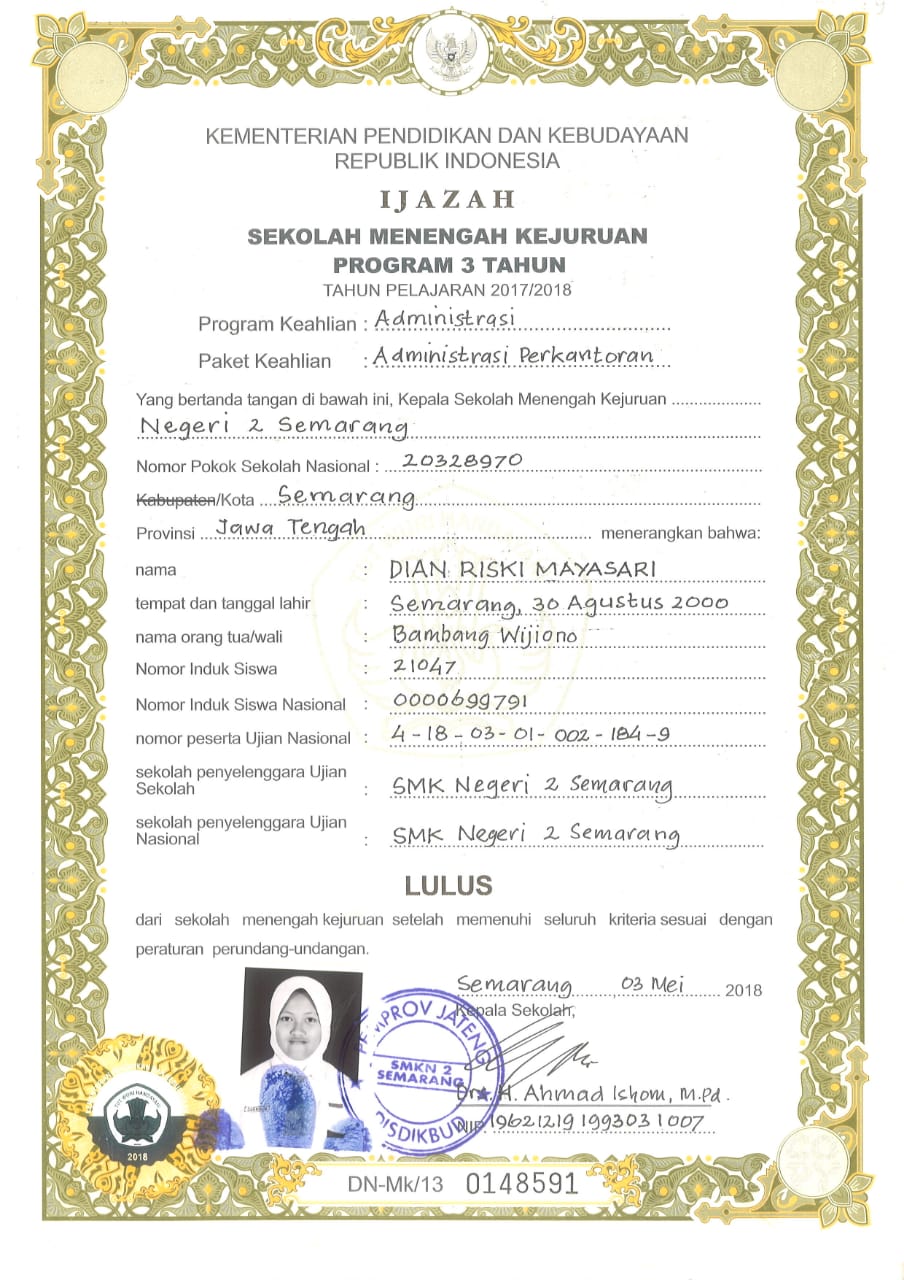 KEMENTERIAN PENDIDIKAN DAN KEBUDAYAAN
REPUBLIK INDONESIA
IJAZAH
SEKOLAH MENENGAH KEJURUAN
PROGRAM 3 TAHUN
TAHUN PELAJARAN 2017/2018
Program Keahlian : Administrasi
Paket Keahlian : Administrasi Perkantoran
Yang bertanda tangan di bawah ini, Kepala Sekolah Menengah Kejuruan ....................
Negeri 2 Semarang
Nomor Pokok Sekolah Nasional : 20328970
Kabupaten/Kota Semarang
Provinsi Jawa Tengah menerangkan bahwa:
nama : DIAN RISKI MAYASARI
tempat dan tanggal lahir : Semarang, 30 Agustus 2000
nama orang tua/wali : Bambang Wijiono
Nomor Induk Siswa : 21047
Nomor Induk Siswa Nasional : 0000699791
nomor peserta Ujian Nasional : 4-18-03-01-002-184-9
sekolah penyelenggara Ujian
Sekolah : SMK Negeri 2 Semarang
sekolah penyelenggara Ujian
Nasional : SMK Negeri 2 Semarang
LULUS
dari sekolah menengah kejuruan setelah memenuhi seluruh kriteria sesuai dengan
peraturan perundang-undangan.
Semarang, 03 Mei 2018
Kepala Sekolah,
PEMPROV JATENG
SMKN 2
SEMARANG
DISDIKBUD
Drs. H. Ahmad Ishom, M.Pd.
NIP 19621219 199303 1 007
TUT WURI HANDAYANI
2018
DN-Mk/13 0148591